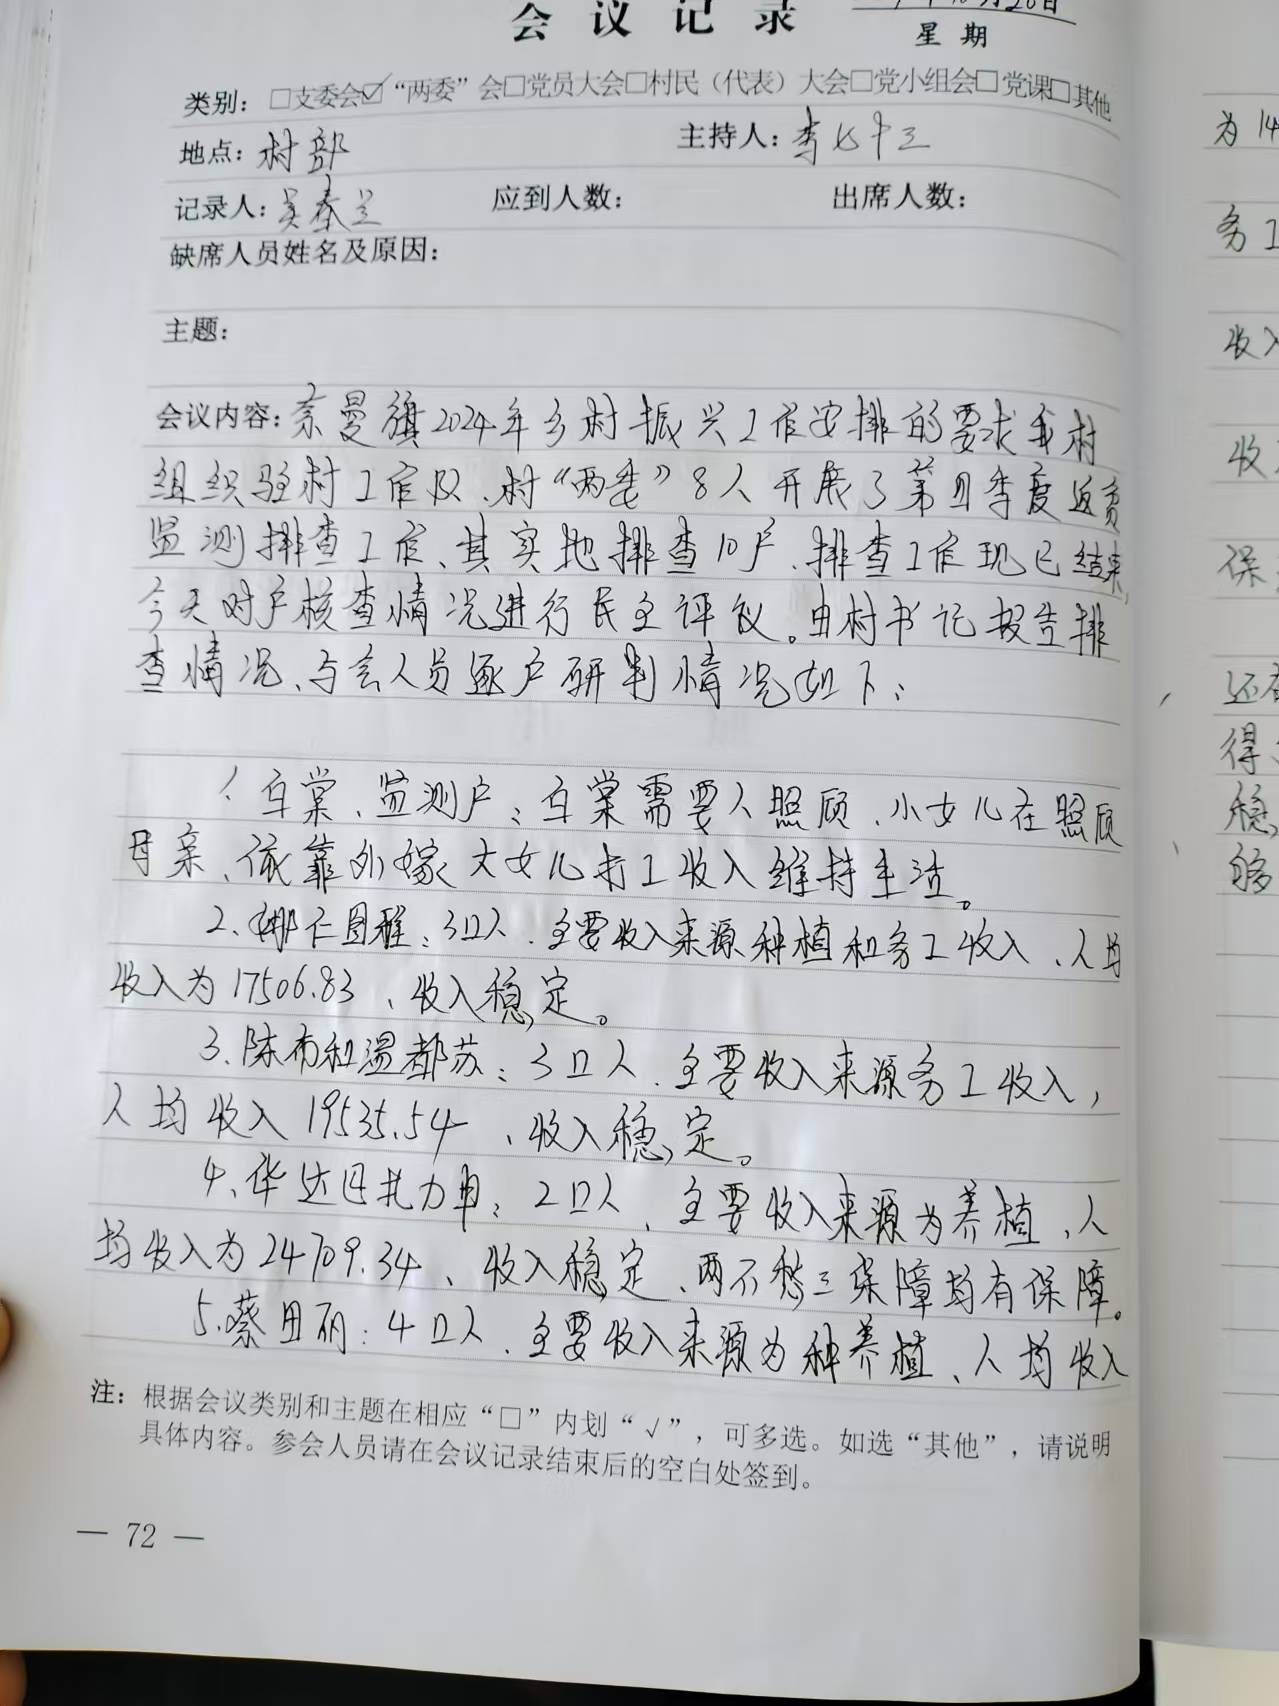 会议记录
月20日
星期
类别：□支委会☑“两委”会□党员大会□村民（代表）大会□党小组会□党课□其他
地点：村部 主持人：李
记录人：吴春兰 应到人数： 出席人数：
缺席人员姓名及原因：
主题：
会议内容：奈曼旗2024年乡村振兴工作安排的要求我村
组织驻村工作队、村“两委”8人开展了第四季度返贫
监测排查工作、其实地排查10户、排查工作现已结束，
今天对户核查情况进行民主评议。由村书记报告排
查情况、与会人员逐户研判情况如下：
1、白棠、监测户；白棠需要人照顾、小女儿在照顾
母亲、依靠外嫁大女儿打工收入维持生活。
2、娜仁图雅：3口人、主要收入来源种植和务工收入、人均
收入为17506.83、收入稳定。
3、陈布和温都苏：3口人、主要收入来源务工收入，
人均收入19535.54、收入稳定。
4、华达巴扎力单：2口人、主要收入来源为养植、人
均收入为24709.34、收入稳定、两不愁三保障均有保障。
5、蔡田丽：4口人、主要收入来源为种养植、人均收入
注：根据会议类别和主题在相应“□”内划“√”，可多选。如选“其他”，请说明
具体内容。参会人员请在会议记录结束后的空白处签到。
— 72 —
为14
务工
收入
收
保
还
得
稳
够